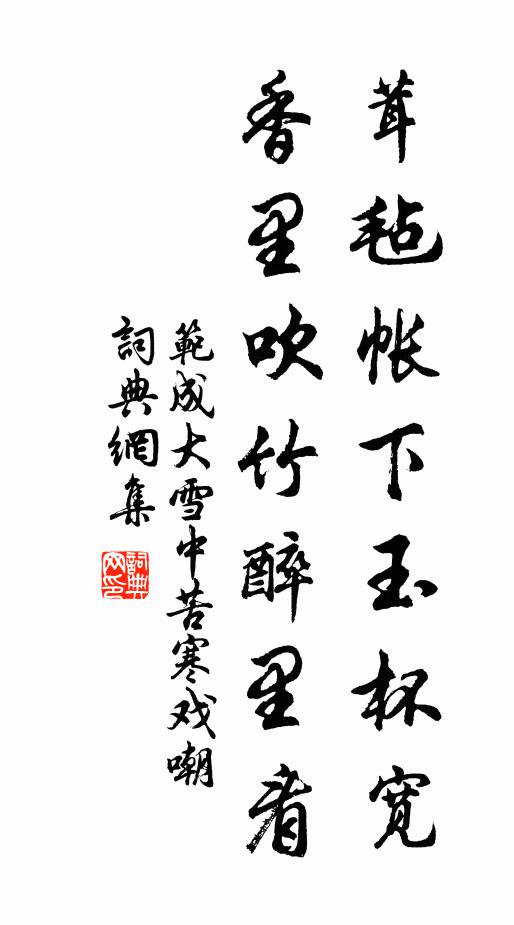 茸毡帐下玉杯宽
香里吹竹醉里看
範成大雪中苦寒戏嘲
詞典網集
詞典网印